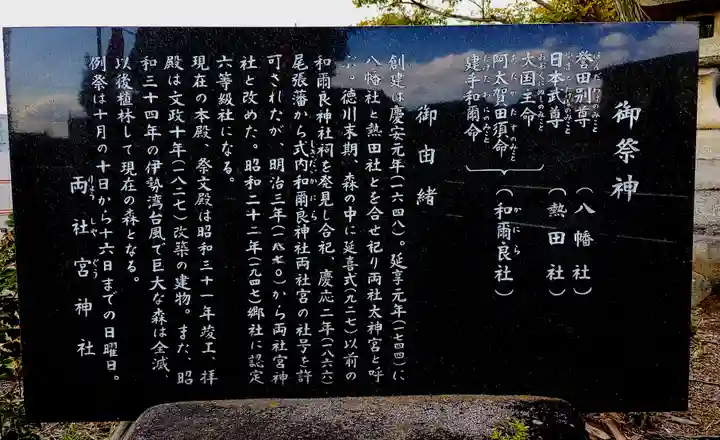 御祭神
誉田別尊（八幡社）
日本武尊（熱田社）
大国主命
阿太賀田須命（和爾良社）
建手和爾命
御由緒
創建は慶安元年（一六四八）。延享元年（一七四四）に
八幡社と熱田社とを合せ祀り両社太神宮と呼
ぶ。徳川末期、森の中に延喜式（九二七）以前の
和爾良神社祠を発見し合祀、慶応二年（一八六六）
尾張藩から式内和爾良神社両社宮の社号を許
可されたが、明治三年（一八七〇）から両社宮神
社と改めた。昭和二十二年（一九四七）郷社に認定
六等級社になる。
現在の本殿、祭文殿は昭和三十一年竣工、拝
殿は文政十年（一八二七）改築の建物。また、昭
和三十四年の伊勢湾台風で巨大な森は全滅、
以後植林して現在の森となる。
例祭は十月の十日から十六日までの日曜日。
両社宮神社